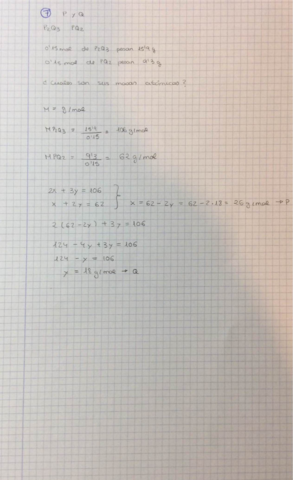 7 P y Q
P2Q3 PQ2
0'15 mol de P2Q3 pesan 15'9 g
0'15 mol de PQ2 pesan 9'3 g
¿Cuáles son sus masas atómicas?
M = g/mol
M P2Q3 = 15'9 / 0'15 = 106 g/mol
M PQ2 = 9'3 / 0'15 = 62 g/mol
2x + 3y = 106
x + 2y = 62 } x = 62 - 2y = 62 - 2·18 = 26 g/mol → P
2 (62 - 2y) + 3y = 106
124 - 4y + 3y = 106
124 - y = 106
y = 18 g/mol → Q